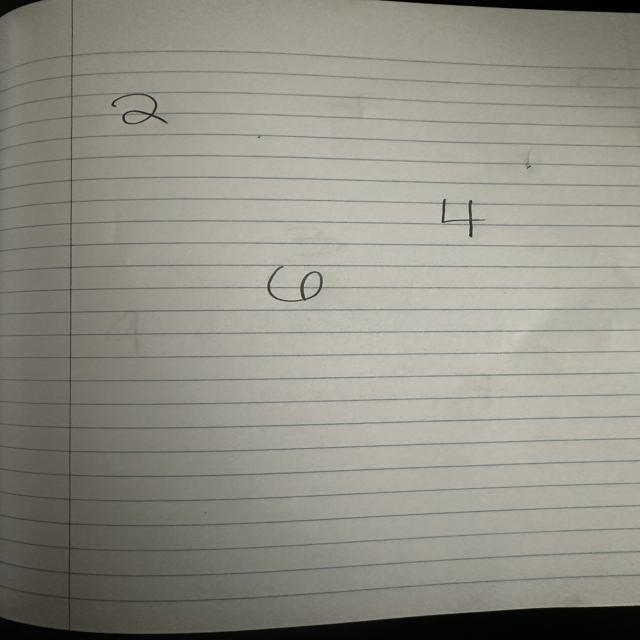 2
4
6